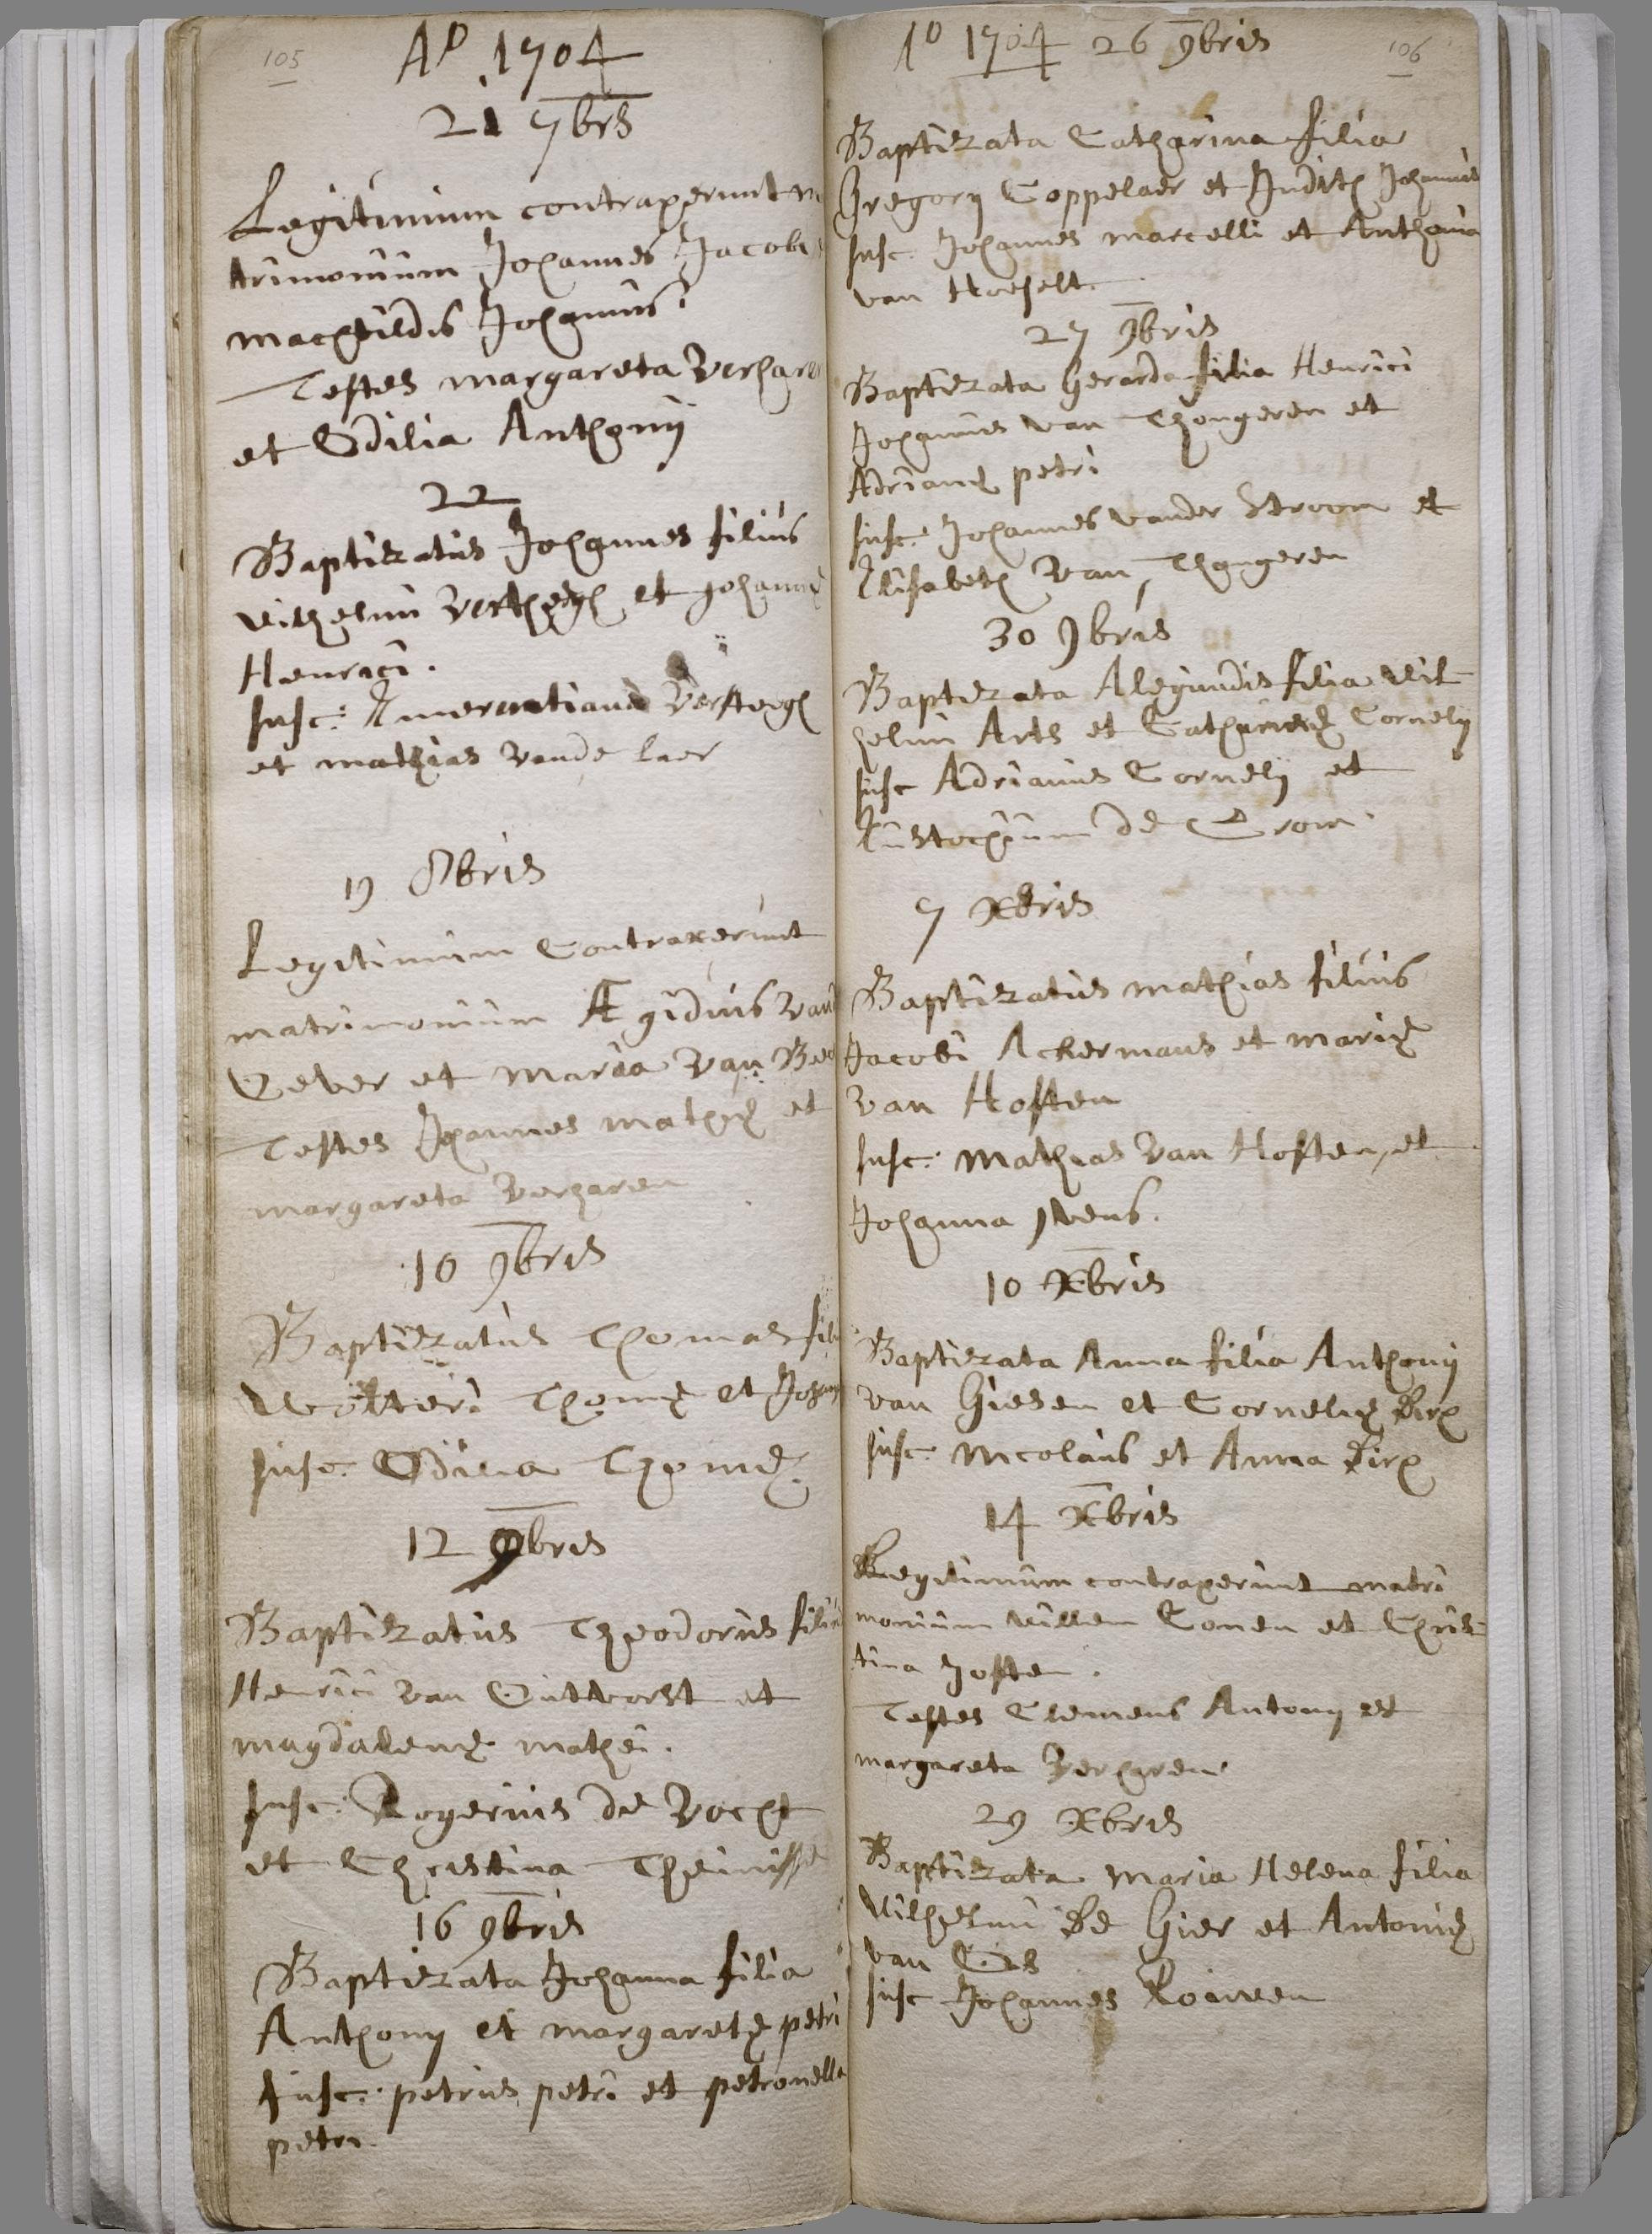 105
A° 1704
21 7bris
Legitimum contraxerunt
trimonium Johannes Jacobi
Machtildis Johannis
Testes Margareta Verharen
et Odilia Anthonij
22
Baptizatus Johannes filius
Wilhelmi Verstegh et Johannæ
Henrici.
susc: Emerentiana Verstegh
et Mathias Vande Laer
19 8bris
Legitimum Contraxerunt
matrimonium Ægidius Van
Gever et Maria Van
Testes Johannes Mathei et
Margareta Verharen
10 9bris
Baptizatus Thomas fili
Wolteri Thomæ et Johan
susc. Odilia Thomæ.
12 9bris
Baptizatus Theodorus filiu
Henrici van Outvorst et
Magdalenæ Mathei.
susc: Rogerius de Vocht
et Christina Theunisse
16 9bris
Baptizata Johanna filia
Anthony et Margaretæ petri
susc: petrus petri et petronella
petri.
A° 1704 26 9bris
106
Baptizata Catharina filia
Gregorij Coppelaer et Judith Johannis
susc. Johannes Marcelli et Anthonia
van Hoeselt.
27 9bris
Baptizata Gerarda filia Henrici
Johannis van Thongeren et
Adrianæ petri
susc. Johannes vander Stroom et
Elisabeth Van Thongeren
30 9bris
Baptizata Alegundis filia Wil
helmi Arts et Catharinæ Cornelij
susc Adrianus Cornelij et
Eustochium de Crom
7 Xbris
Baptizatus Mathias filius
Jacobi Ackermans et Mariæ
van Hoften
susc: Mathias Van Hoften, et
Johanna Ivens.
10 Xbris
Baptizata Anna filia Anthonij
van Giesen et Corneliæ Dirx
susc: Nicolaus et Anna Dirx
14 Xbris
Legitimum contraxerunt matri
monium Willem Conen et Chris
tina Josten.
Testes Clemens Antony et
Margareta Verharen
29 Xbris
Baptizata Maria Helena filia
Wilhelmi De Gier et Antoniæ
van Os
susc Johannes Romen